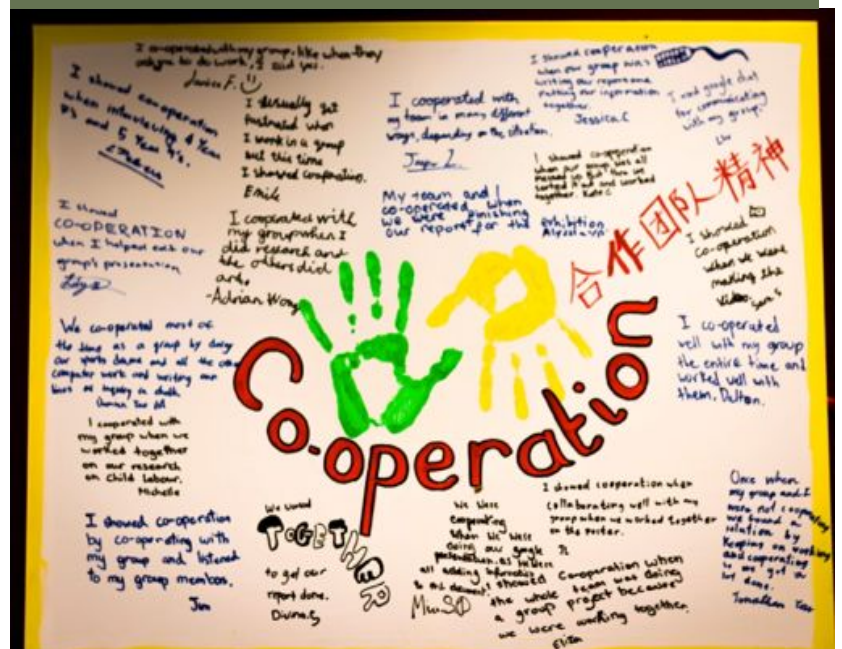 I co-operated with my group, like when they
asked you to do work, I said yes.
Janice F.
I showed co-operation
when interviewing 4 Year
3's and 5 Year 4's.
I usually get
frustrated when
I work in a group
but this time
I showed cooperation.
Emily
I cooperated with
my team in many different
ways, depending on the situation.
I showed cooperation
when our group was
writing our report and
putting our information
together.
Jessica C
I used google chat
for communicating
with my group.
I showed co-operation
when our group was all
messed up but then we
sorted it out and worked
together. Kate C
My team and I
co-operated when
we were finishing
our report for the exhibition
合作团队精神
I showed
CO-OPERATION
when I helped edit our
group's presentation
I cooperated with
my group when I
did research and
the others did
art.
-Adrian Wong
I showed
co-operation
when we were
making the
video.
Sam
We co-operated most of
the time as a group by doing
our sports and all the other
computer work and writing our
lines of inquiry in
I co-operated
well with my group
the entire time and
worked well with
them. Dalton.
I cooperated with
my group when we
worked together
on our research
on Child Labour.
Michelle
Co-operation
I showed co-operation
by co-operating with
my group and listened
to my group members.
Jim
We worked
TOGETHER
to get our
report done.
Divina
We were
cooperating
when we were
doing our google
presentation as we were
all adding information
to the document!
I showed cooperation when
collaborating well with my
group when we worked together
on the poster.
I showed cooperation when
the whole team was doing
a group project because
we were working together.
Eliza
Once when
my group and I
were not cooperating
we found a
solution by
keeping on working
and cooperating
so we got a
lot done.
Jonathan